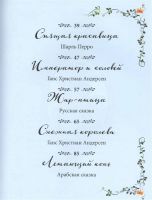 стр. 39
Спящая красавица
Шарль Перро
стр. 47
Император и соловей
Ганс Христиан Андерсен
стр. 57
Жар-птица
Русская сказка
стр. 65
Снежная королева
Ганс Христиан Андерсен
стр. 85
Летающий конь
Арабская сказка